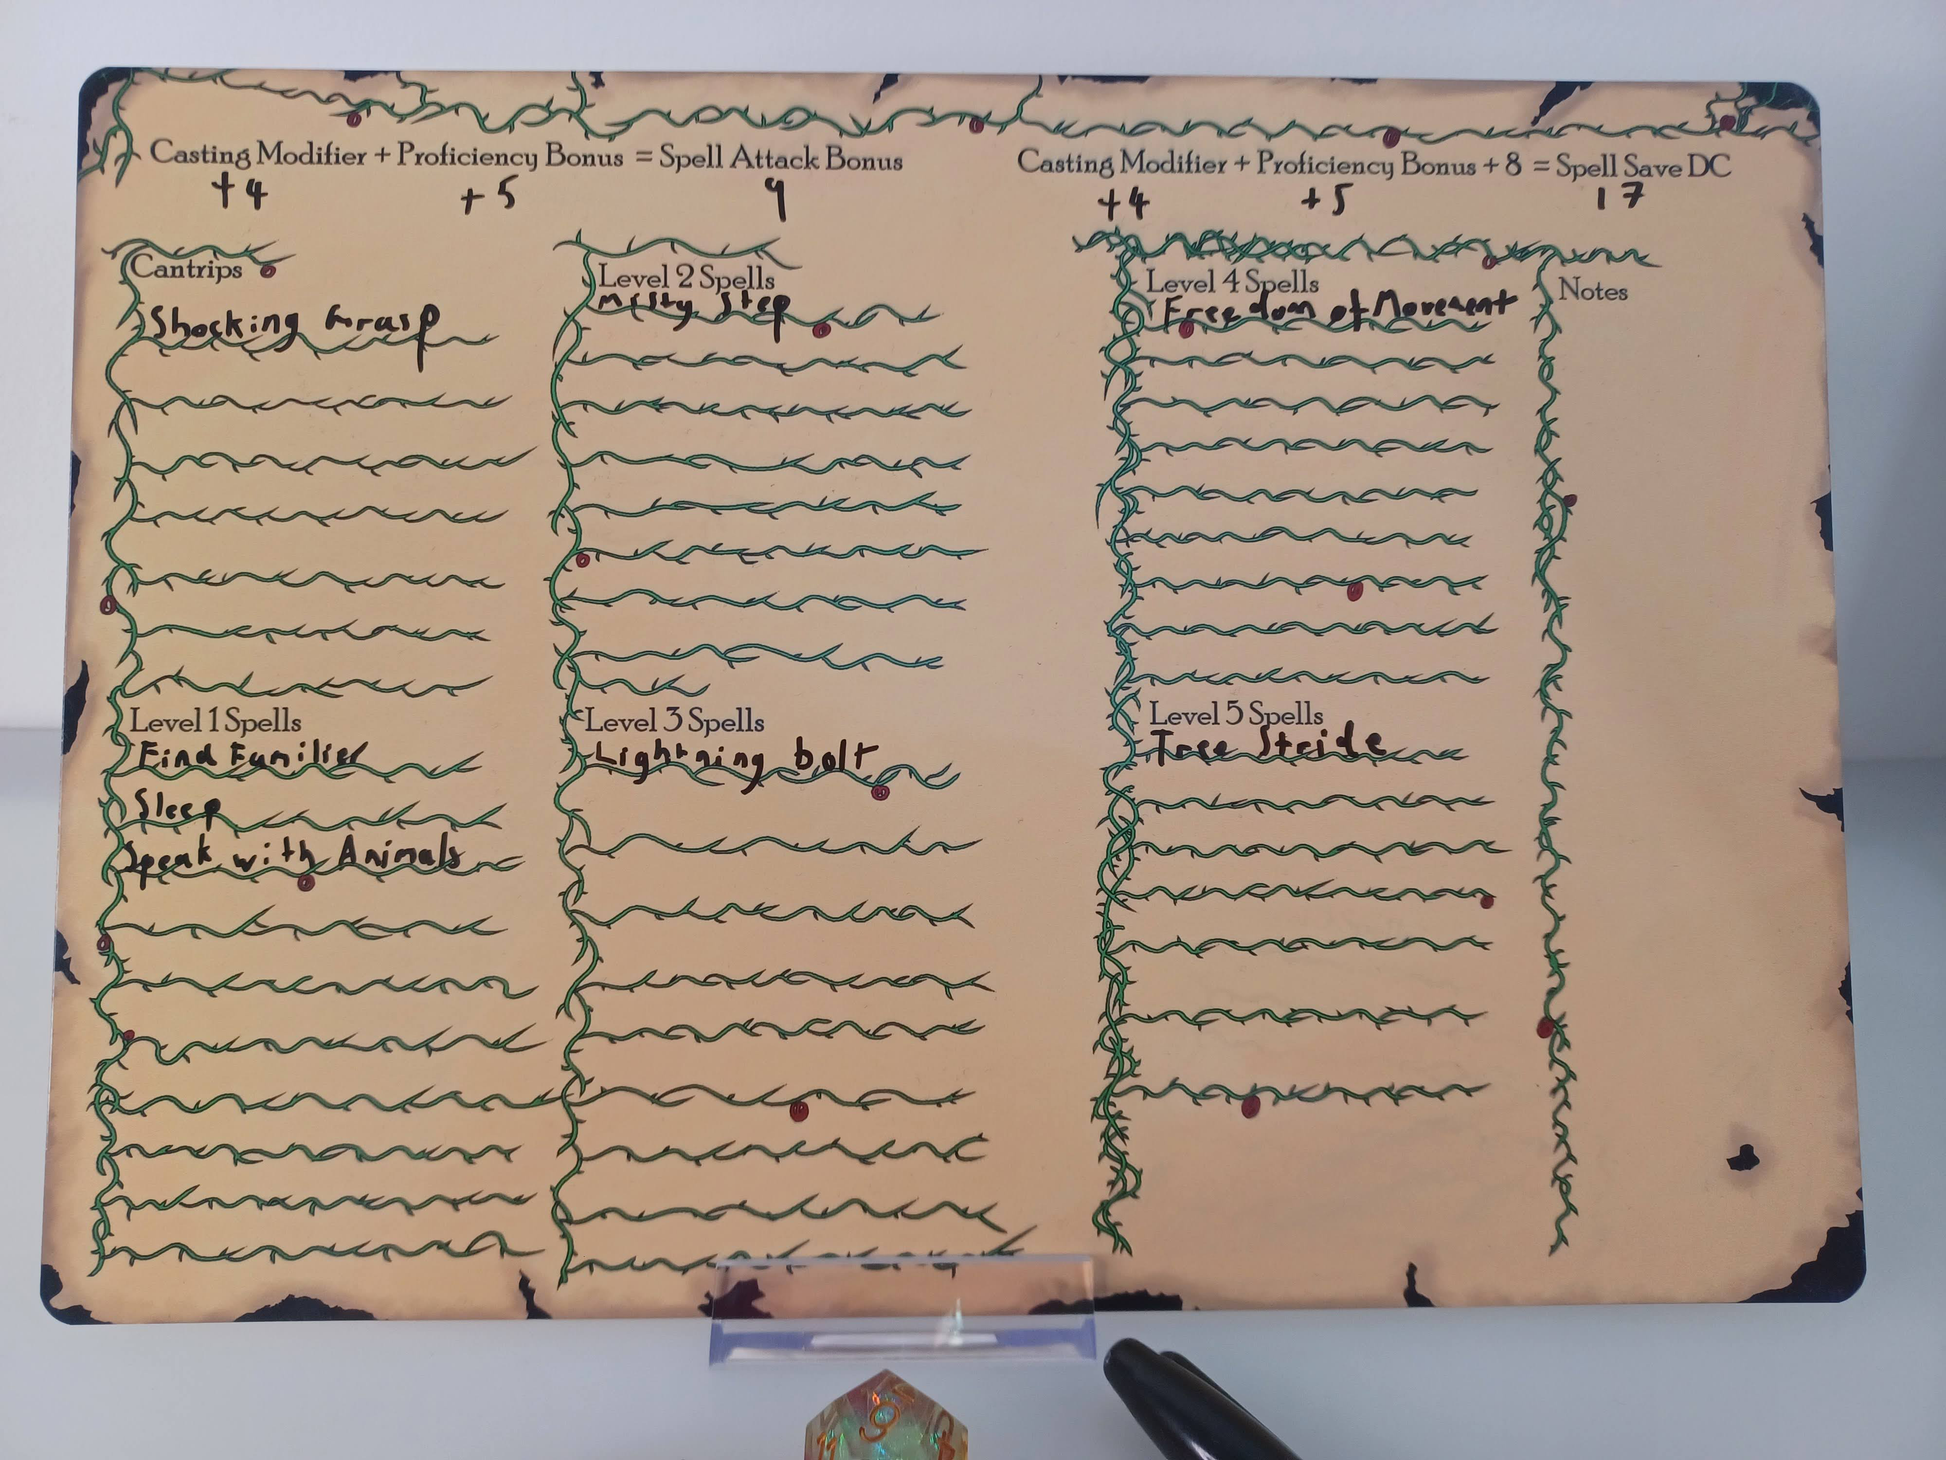 Casting Modifier + Proficiency Bonus = Spell Attack Bonus
+4 +5 9
Casting Modifier + Proficiency Bonus + 8 = Spell Save DC
+4 +5 17
Cantrips
Shocking Grasp
Level 1 Spells
Find Familier
Sleep
Speak with Animals
Level 2 Spells
Misty Step
Level 3 Spells
Lightning bolt
Level 4 Spells
Freedom of Movement
Level 5 Spells
Tree Stride
Notes
9
11